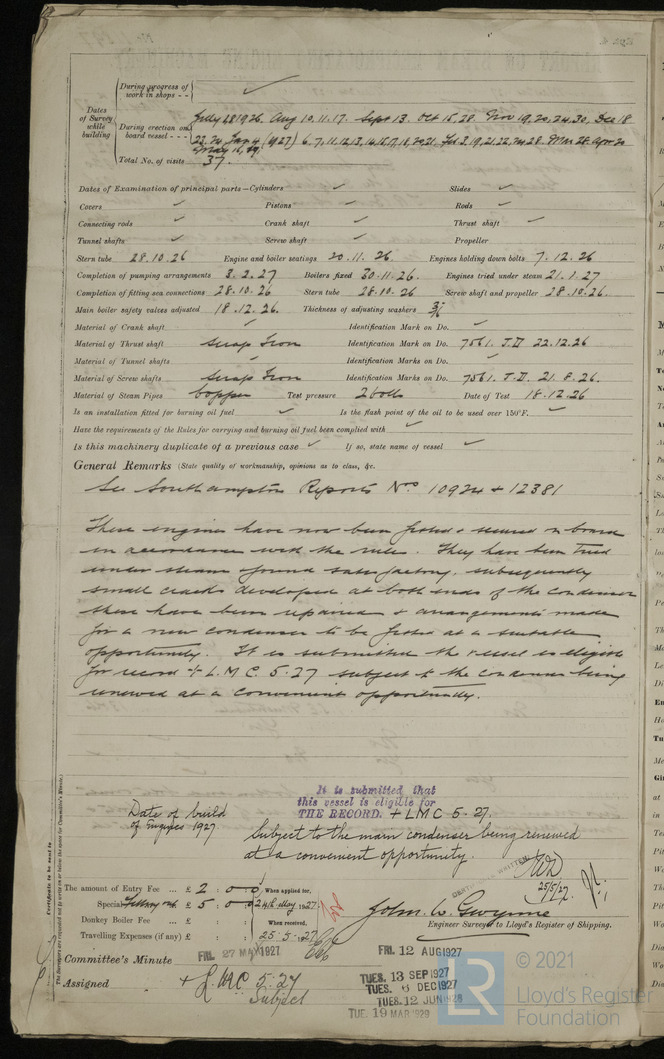 During progress of
work in shops - -
Dates
of Survey
while
building
During erection on
board vessel - - -
July 28 1926. Aug 10. 11. 17. Sept 13. Oct 15. 28. Nov 19. 20, 24. 30, Dec 18
22. 24 Jan 4 (1927) 6. 7, 11. 12. 13, 14. 15. 17. 19, 20. 21. Feb 3. 19, 21. 22, 24. 28. Mar 28. Apr 20
May 16, 19.
Total No. of visits 37.
Dates of Examination of principal parts—Cylinders ✓ Slides ✓
Covers ✓ Pistons ✓ Rods ✓
Connecting rods ✓ Crank shaft ✓ Thrust shaft ✓
Tunnel shafts ✓ Screw shaft ✓ Propeller
Stern tube 28.10.26 Engine and boiler seatings 20.11.26. Engines holding down bolts 7.12.26
Completion of pumping arrangements 3.2.27 Boilers fixed 30.11.26. Engines tried under steam 21.1.27
Completion of fitting sea connections 28.10.26 Stern tube 28.10.26 Screw shaft and propeller 28.10.26.
Main boiler safety valves adjusted 18.12.26. Thickness of adjusting washers
Material of Crank shaft ✓ Identification Mark on Do. ✓
Material of Thrust shaft Scrap Iron Identification Mark on Do. 7561. T.D 22.12.26
Material of Tunnel shafts ✓ Identification Marks on Do. ✓
Material of Screw shafts Scrap Iron Identification Marks on Do. 7561. T.D. 21.8.26.
Material of Steam Pipes Copper Test pressure Date of Test 18.12.26
Is an installation fitted for burning oil fuel ✓ Is the flash point of the oil to be used over 150°F. ✓
Have the requirements of the Rules for carrying and burning oil fuel been complied with ✓
Is this machinery duplicate of a previous case ✓ If so, state name of vessel ✓
General Remarks (State quality of workmanship, opinions as to class, &c.
See Southampton Reports Nos 10924 + 12381
These engines have now been fitted & secured on board
in accordance with the rules. They have been tried
under steam & found satisfactory, subsequently
small cracks developed at both ends of the condenser
these have been repaired & arrangements made
for a new condenser to be fitted at a suitable
opportunity. It is submitted the vessel is eligible
for record + L.M.C. 5.27 subject to the condenser being
renewed at a convenient opportunity.
It is submitted that
this vessel is eligible for
THE RECORD. + LMC 5.27.
Date of build
of Engines 1927
Subject to the main condenser being renewed
at a convenient opportunity.
25/5/27
The amount of Entry Fee ... £ 2 : 0 : 0 When applied for,
Special ... £ 5 : 0 : 0 24th May 1927
Donkey Boiler Fee ... £ : : When received,
Travelling Expenses (if any) £ : : 25.5.27
John W. Gwynne
Engineer Surveyor to Lloyd's Register of Shipping.
Committee's Minute FRI. 27 MAY 1927 FRI. 12 AUG 1927
Assigned + L.M.C. 5.27
Subject
TUES. 13 SEP 1927
TUES. 6 DEC 1927
TUES. 12 JUN 1928
TUE. 19 MAR 1929
Certificate to be sent to
The Surveyors are requested not to write on or below the space for Committee's Minute.
© 2021
Lloyd's Register
Foundation
LR